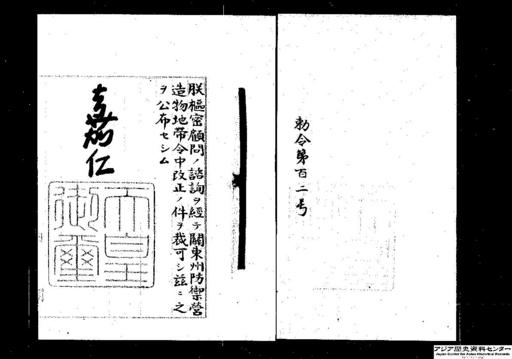 勅令第百二号
朕樞密顧問ノ諮詢ヲ經テ關東州防禦營
造物地帶令中改正ノ件ヲ裁可シ茲ニ之
ヲ公布セシム
嘉仁
天皇
御璽
アジア歴史資料センター
Japan Center for Asian Historical Records